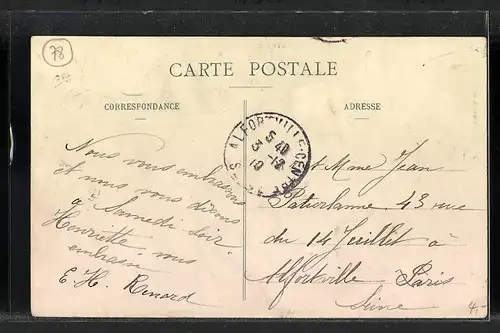 78
CARTE POSTALE
CORRESPONDANCE
ADRESSE
ALFORTVILLE-CENTRE
Nous vous embrassons
et nous vous disons
à Samedi soir.
Henriette vous
embrasse
E. H. Renard
et Mme Jean
43 rue
du 14 Juillet à
Alfortville Paris
Seine
4,-